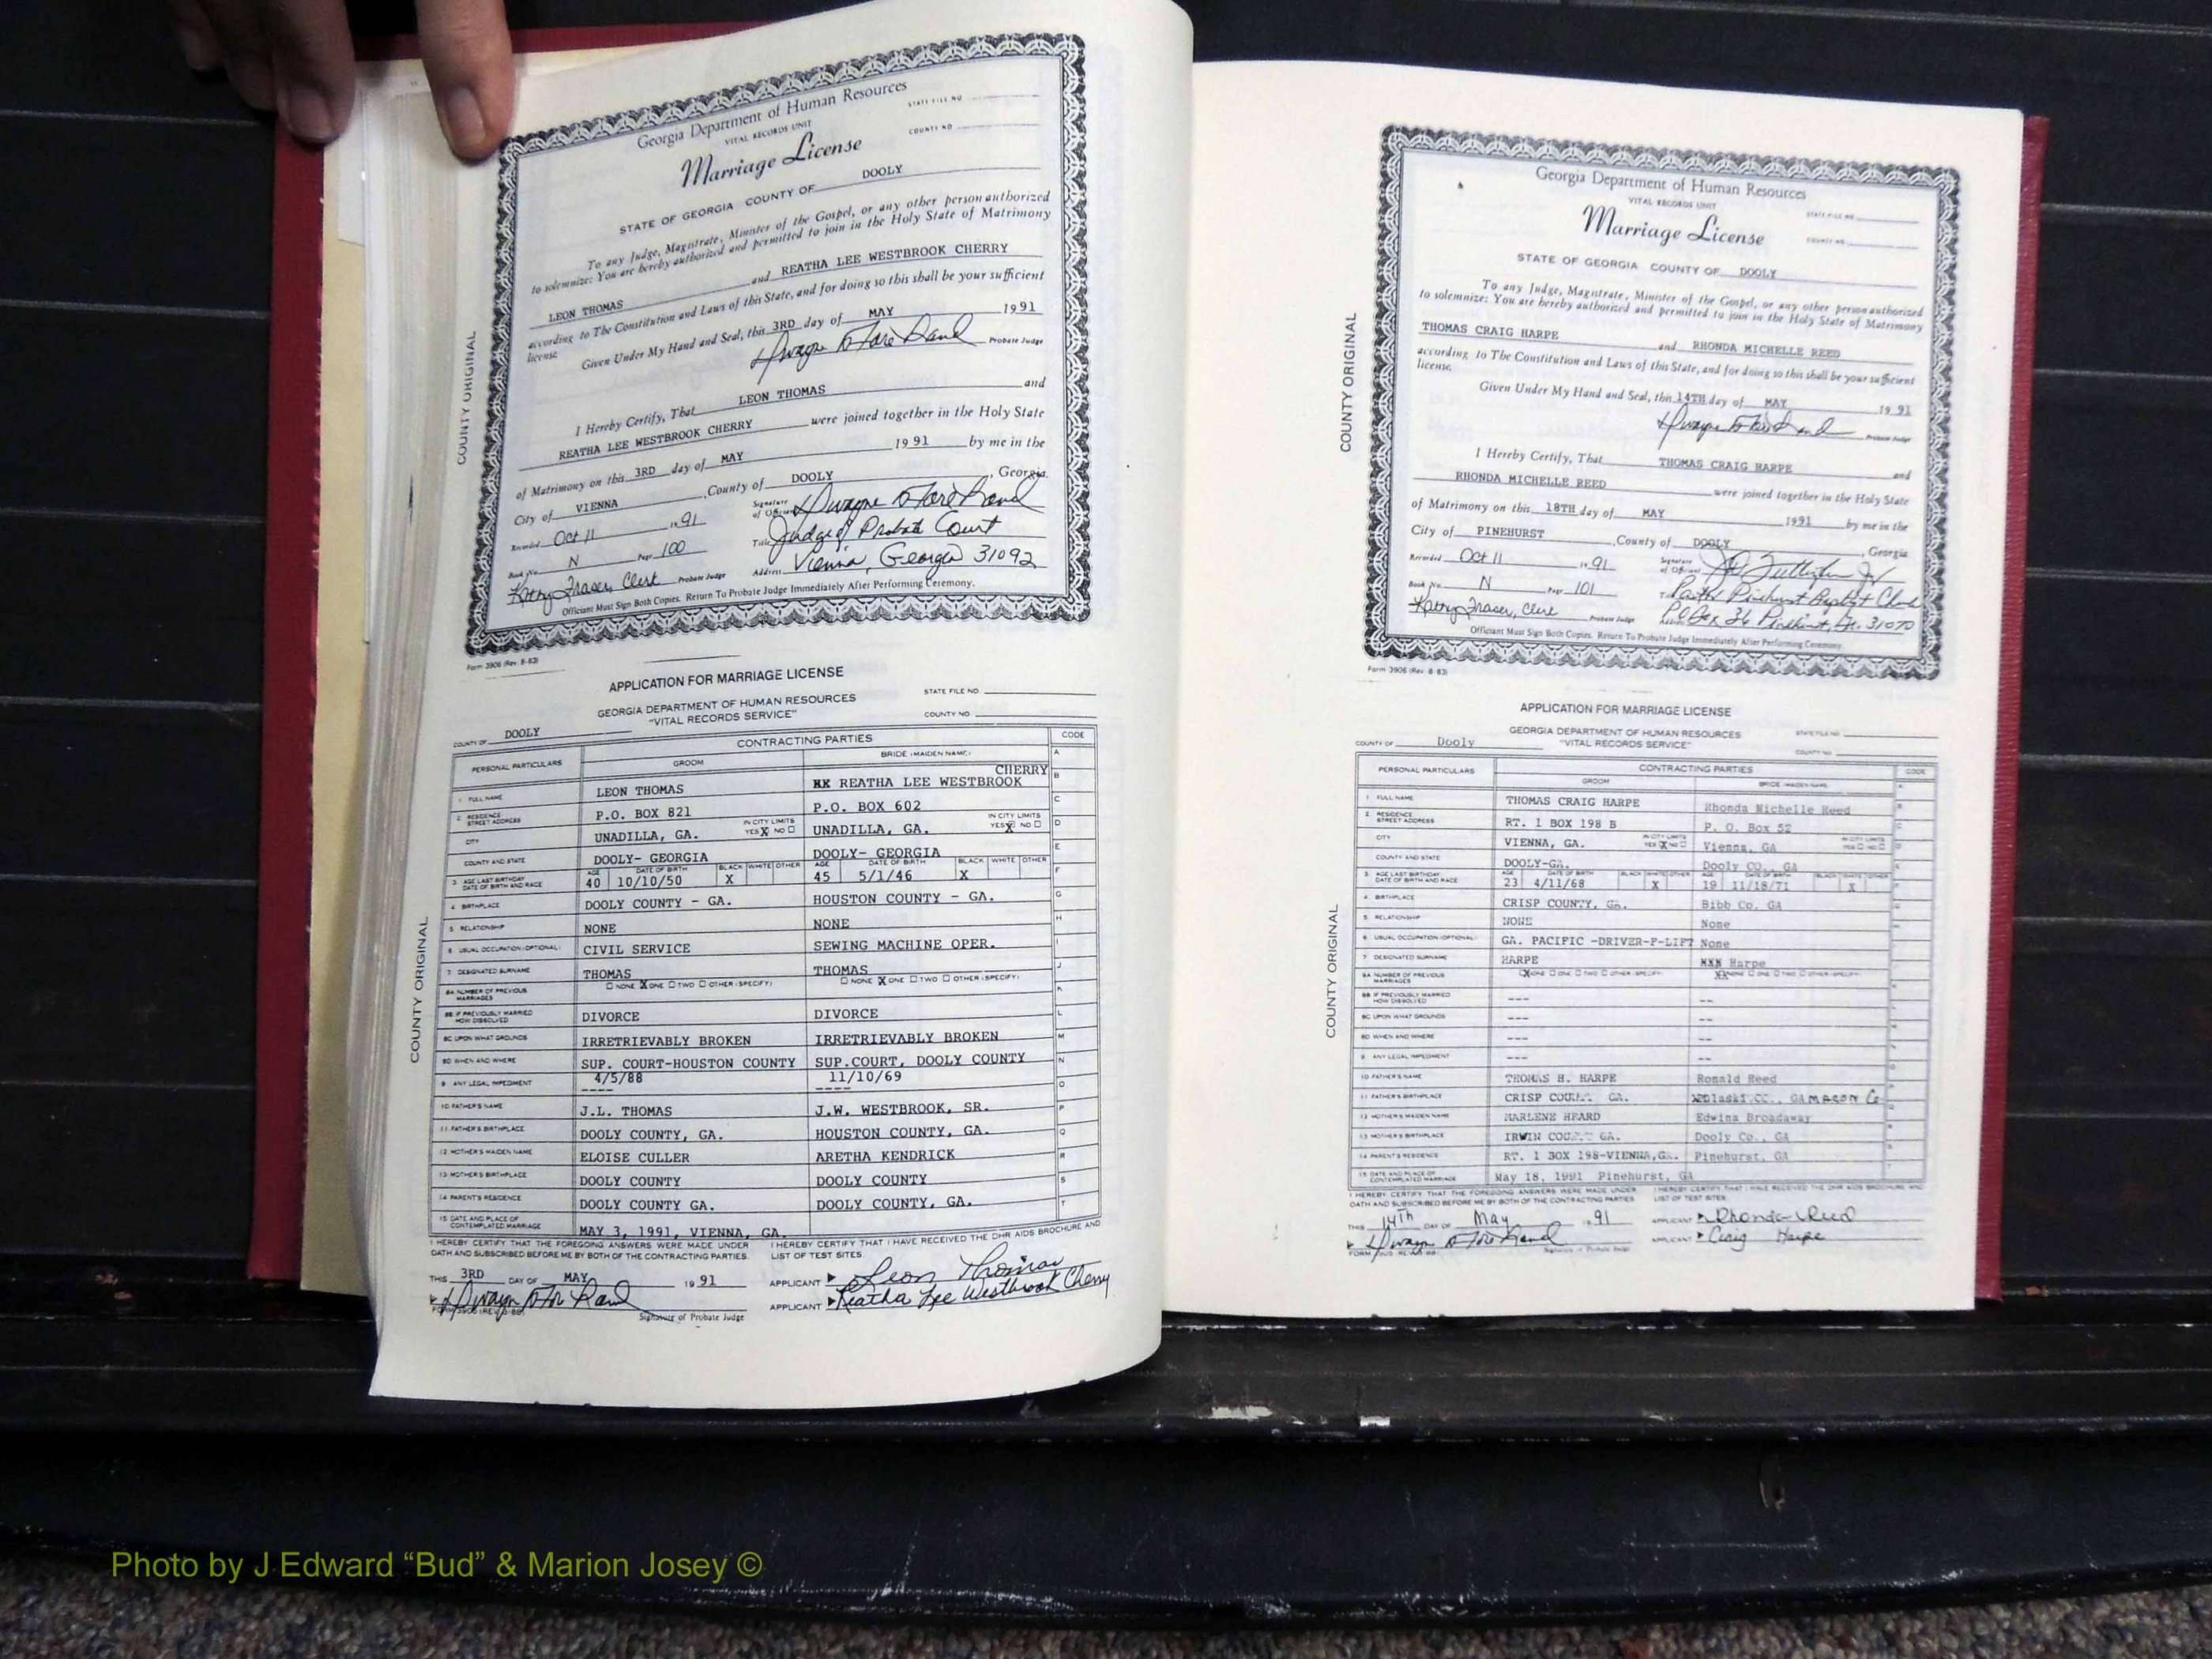 Georgia Department of Human Resources
VITAL RECORDS UNIT
STATE FILE NO
COUNTY NO
Marriage License
STATE OF GEORGIA COUNTY OF DOOLY
To any Judge, Magistrate, Minister of the Gospel, or any other person authorized
to solemnize: You are hereby authorized and permitted to join in the Holy State of Matrimony
LEON THOMAS and REATHA LEE WESTBROOK CHERRY
according to The Constitution and Laws of this State, and for doing so this shall be your sufficient
license.
Given Under My Hand and Seal, this 3RD day of MAY 1991
Probate Judge
I Hereby Certify, That LEON THOMAS and
REATHA LEE WESTBROOK CHERRY were joined together in the Holy State
of Matrimony on this 3RD day of MAY 19 91 by me in the
City of VIENNA, County of DOOLY, Georgia.
Recorded Oct 11 19 91 Signature of Official
Book No. N Page 100 Title Judge of Probate Court
Kathy Fraser, Clerk Probate Judge Address Vienna, Georgia 31092
Officiant Must Sign Both Copies. Return To Probate Judge Immediately After Performing Ceremony.
Form 3906 (Rev. 8-83)
COUNTY ORIGINAL
APPLICATION FOR MARRIAGE LICENSE
GEORGIA DEPARTMENT OF HUMAN RESOURCES
"VITAL RECORDS SERVICE"
STATE FILE NO.
COUNTY NO.
COUNTY OF DOOLY
PERSONAL PARTICULARS CONTRACTING PARTIES CODE
GROOM BRIDE (MAIDEN NAME)
1 FULL NAME LEON THOMAS REATHA LEE WESTBROOK CHERRY
2 RESIDENCE STREET ADDRESS P.O. BOX 821 P.O. BOX 602
CITY UNADILLA, GA. IN CITY LIMITS YES X NO UNADILLA, GA. IN CITY LIMITS YES X NO
COUNTY AND STATE DOOLY- GEORGIA DOOLY- GEORGIA
3 AGE LAST BIRTHDAY DATE OF BIRTH AND RACE AGE 40 DATE OF BIRTH 10/10/50 BLACK X WHITE OTHER AGE 45 DATE OF BIRTH 5/1/46 BLACK X WHITE OTHER
4 BIRTHPLACE DOOLY COUNTY - GA. HOUSTON COUNTY - GA.
5 RELATIONSHIP NONE NONE
6 USUAL OCCUPATION (OPTIONAL) CIVIL SERVICE SEWING MACHINE OPER.
7 DESIGNATED SURNAME THOMAS THOMAS
8A NUMBER OF PREVIOUS MARRIAGES NONE X ONE TWO OTHER (SPECIFY) NONE X ONE TWO OTHER (SPECIFY)
8B IF PREVIOUSLY MARRIED HOW DISSOLVED DIVORCE DIVORCE
8C UPON WHAT GROUNDS IRRETRIEVABLY BROKEN IRRETRIEVABLY BROKEN
8D WHEN AND WHERE SUP. COURT-HOUSTON COUNTY SUP.COURT, DOOLY COUNTY
4/5/88 11/10/69
9 ANY LEGAL IMPEDIMENT ---- ----
10 FATHER'S NAME J.L. THOMAS J.W. WESTBROOK, SR.
11 FATHER'S BIRTHPLACE DOOLY COUNTY, GA. HOUSTON COUNTY, GA.
12 MOTHER'S MAIDEN NAME ELOISE CULLER ARETHA KENDRICK
13 MOTHER'S BIRTHPLACE DOOLY COUNTY DOOLY COUNTY
14 PARENT'S RESIDENCE DOOLY COUNTY GA. DOOLY COUNTY, GA.
15 DATE AND PLACE OF CONTEMPLATED MARRIAGE MAY 3, 1991, VIENNA, GA.
A
B
C
D
E
F
G
H
I
J
K
L
M
N
O
P
Q
R
S
T
COUNTY ORIGINAL
I HEREBY CERTIFY THAT THE FOREGOING ANSWERS WERE MADE UNDER
OATH AND SUBSCRIBED BEFORE ME BY BOTH OF THE CONTRACTING PARTIES.
I HEREBY CERTIFY THAT I HAVE RECEIVED THE DHR AIDS BROCHURE AND
LIST OF TEST SITES.
THIS 3RD DAY OF MAY 19 91
APPLICANT Leon Thomas
APPLICANT Reatha Lee Westbrook Cherry
Signature of Probate Judge
Georgia Department of Human Resources
VITAL RECORDS UNIT
STATE FILE NO
COUNTY NO.
Marriage License
STATE OF GEORGIA COUNTY OF DOOLY
To any Judge, Magistrate, Minister of the Gospel, or any other person authorized
to solemnize: You are hereby authorized and permitted to join in the Holy State of Matrimony
THOMAS CRAIG HARPE and RHONDA MICHELLE REED
according to The Constitution and Laws of this State, and for doing so this shall be your sufficient
license.
Given Under My Hand and Seal, this 14TH day of MAY 19 91
Probate Judge
I Hereby Certify, That THOMAS CRAIG HARPE and
RHONDA MICHELLE REED were joined together in the Holy State
of Matrimony on this 18TH day of MAY 1991 by me in the
City of PINEHURST, County of DOOLY, Georgia
Recorded Oct 11 19 91 Signature of Official
Book No. N Page 101 Pinehurst Baptist Church
Kathy Fraser, Clerk Probate Judge P.O. Box 36 Pinehurst, Ga. 31070
Officiant Must Sign Both Copies. Return To Probate Judge Immediately After Performing Ceremony
Form 3906 (Rev. 8-83)
COUNTY ORIGINAL
APPLICATION FOR MARRIAGE LICENSE
GEORGIA DEPARTMENT OF HUMAN RESOURCES
"VITAL RECORDS SERVICE"
STATE FILE NO.
COUNTY NO.
COUNTY OF Dooly
PERSONAL PARTICULARS CONTRACTING PARTIES CODE
GROOM BRIDE (MAIDEN NAME)
1 FULL NAME THOMAS CRAIG HARPE Rhonda Michelle Reed
2 RESIDENCE STREET ADDRESS RT. 1 BOX 198 B P. O. Box 52
CITY VIENNA, GA. IN CITY LIMITS YES X NO Vienna, GA IN CITY LIMITS YES NO
COUNTY AND STATE DOOLY-GA. Dooly CO., GA
3 AGE LAST BIRTHDAY DATE OF BIRTH AND RACE AGE 23 DATE OF BIRTH 4/11/68 BLACK WHITE X OTHER AGE 19 DATE OF BIRTH 11/18/71 BLACK WHITE X OTHER
4 BIRTHPLACE CRISP COUNTY, GA. Bibb Co. GA
5 RELATIONSHIP NONE None
6 USUAL OCCUPATION (OPTIONAL) GA. PACIFIC -DRIVER-F-LIFT None
7 DESIGNATED SURNAME HARPE Harpe
8A NUMBER OF PREVIOUS MARRIAGES X NONE ONE TWO OTHER (SPECIFY) X NONE ONE TWO OTHER (SPECIFY)
8B IF PREVIOUSLY MARRIED HOW DISSOLVED --- --
8C UPON WHAT GROUNDS --- --
8D WHEN AND WHERE --- --
9 ANY LEGAL IMPEDIMENT --- --
10 FATHER'S NAME THOMAS H. HARPE Ronald Reed
11 FATHER'S BIRTHPLACE CRISP COUNTY GA. Pulaski CO., GA MACON Co
12 MOTHER'S MAIDEN NAME MARLENE HEARD Edwina Broadaway
13 MOTHER'S BIRTHPLACE IRWIN COUNTY GA. Dooly Co., GA
14 PARENT'S RESIDENCE RT. 1 BOX 198-VIENNA,GA. Pinehurst, GA
15 DATE AND PLACE OF CONTEMPLATED MARRIAGE May 18, 1991 Pinehurst, GA
COUNTY ORIGINAL
I HEREBY CERTIFY THAT THE FOREGOING ANSWERS WERE MADE UNDER
OATH AND SUBSCRIBED BEFORE ME BY BOTH OF THE CONTRACTING PARTIES
I HEREBY CERTIFY THAT I HAVE RECEIVED THE DHR AIDS BROCHURE AND
LIST OF TEST SITES.
THIS 14Th DAY OF May 19 91
APPLICANT Rhonda Reed
APPLICANT Craig Harpe
Signature of Probate Judge
Photo by J Edward “Bud” & Marion Josey ©